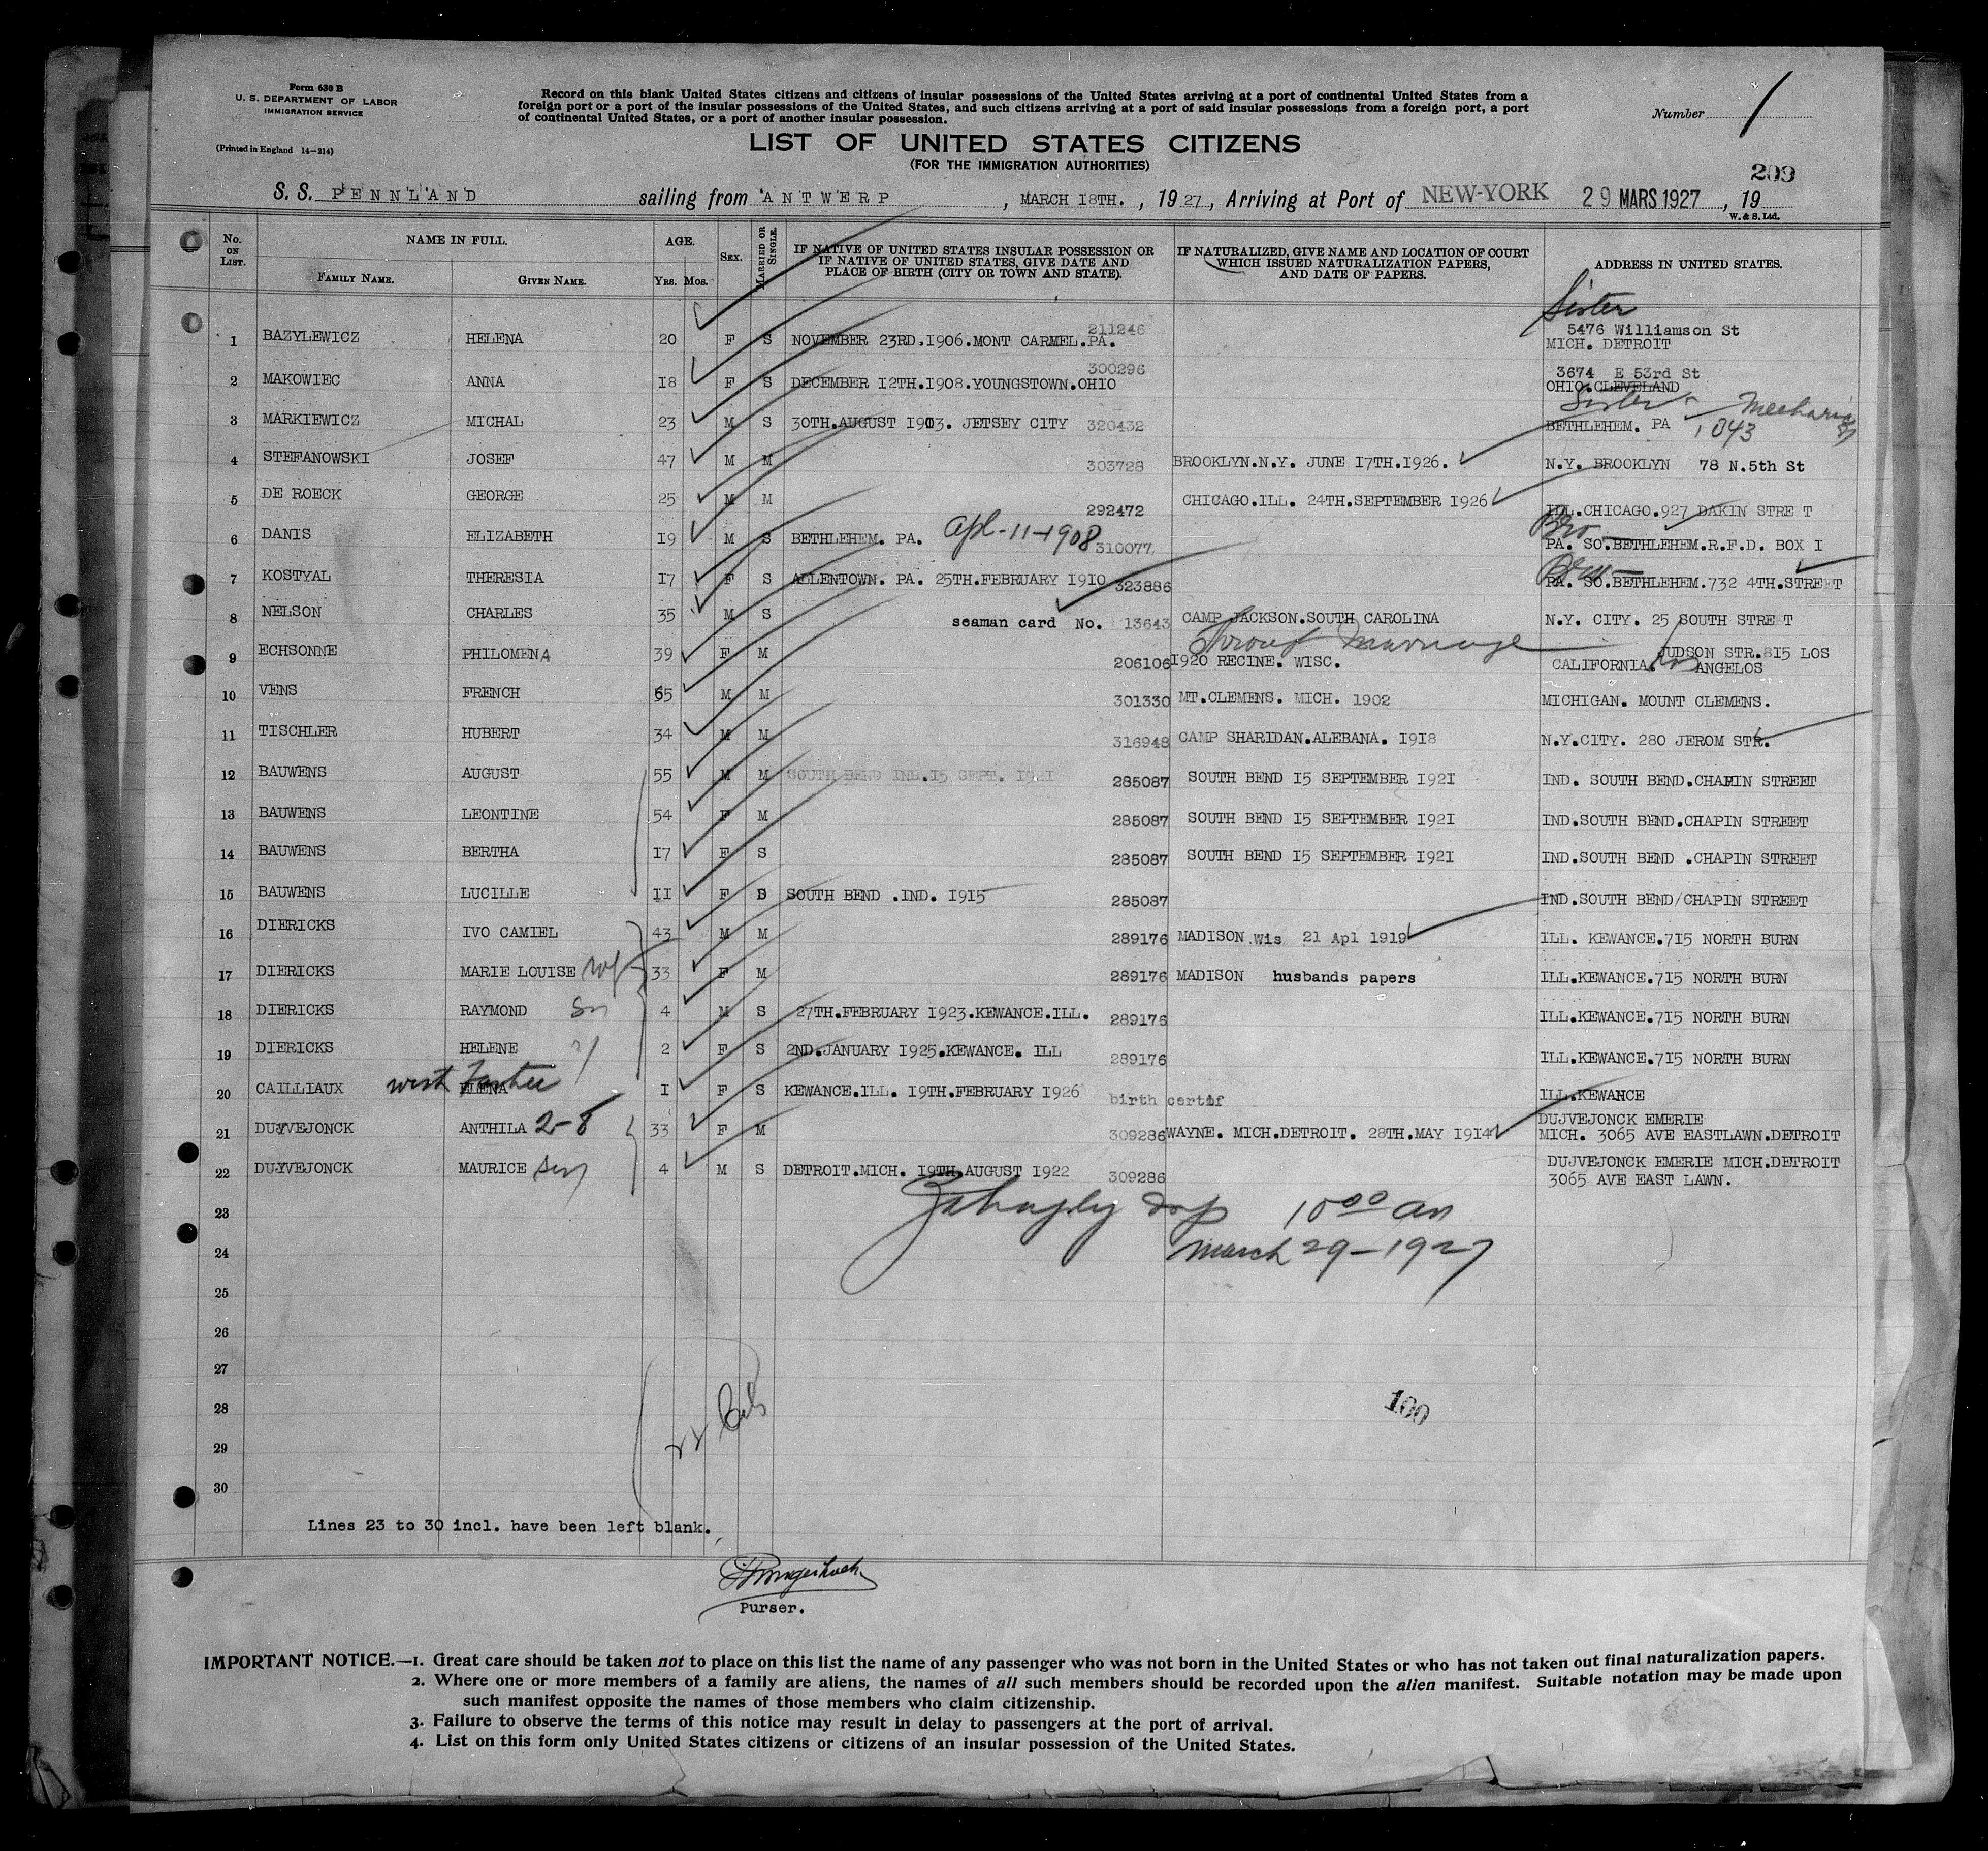 Form 630 B
U. S. DEPARTMENT OF LABOR
IMMIGRATION SERVICE
(Printed in England 14—214)
Record on this blank United States citizens and citizens of insular possessions of the United States arriving at a port of continental United States from a
foreign port or a port of the insular possessions of the United States, and such citizens arriving at a port of said insular possessions from a foreign port, a port
of continental United States, or a port of another insular possession.
Number 1
LIST OF UNITED STATES CITIZENS
(FOR THE IMMIGRATION AUTHORITIES)
209
S. S. PENNLAND sailing from ANTWERP, MARCH 18TH., 1927, Arriving at Port of NEW-YORK 29 MARS 1927, 19
W. & S. Ltd.
No. ON LIST. NAME IN FULL. FAMILY NAME. GIVEN NAME. AGE. YRS. MOS. SEX. MARRIED OR SINGLE. IF NATIVE OF UNITED STATES INSULAR POSSESSION OR IF NATIVE OF UNITED STATES, GIVE DATE AND PLACE OF BIRTH (CITY OR TOWN AND STATE). IF NATURALIZED, GIVE NAME AND LOCATION OF COURT WHICH ISSUED NATURALIZATION PAPERS, AND DATE OF PAPERS. ADDRESS IN UNITED STATES.
Sister
1 BAZYLEWICZ HELENA 20 F S NOVEMBER 23RD.1906.MONT CARMEL.PA. 211246 5476 Williamson St MICH. DETROIT
2 MAKOWIEC ANNA 18 F S DECEMBER 12TH.1908.YOUNGSTOWN.OHIO 300296 3674 E 53rd St OHIO.CLEVELAND
Sister
3 MARKIEWICZ MICHAL 23 M S 30TH.AUGUST 1903. JETSEY CITY 320432 BETHLEHEM. PA 1043
4 STEFANOWSKI JOSEF 47 M M 303728 BROOKLYN.N.Y. JUNE 17TH.1926. N.Y. BROOKLYN 78 N.5th St
5 DE ROECK GEORGE 25 M M 292472 CHICAGO.ILL. 24TH.SEPTEMBER 1926 ILL.CHICAGO.927 DAKIN STRE T
6 DANIS ELIZABETH 19 M S BETHLEHEM. PA. Apl-11-1908 310077 Bro PA. SO.BETHLEHEM.R.F.D. BOX I
7 KOSTYAL THERESIA 17 F S ALLENTOWN. PA. 25TH.FEBRUARY 1910 323886 Bro PA. SO.BETHLEHEM.732 4TH.STREET
8 NELSON CHARLES 35 M S seaman card No. 13643 CAMP JACKSON.SOUTH CAROLINA N.Y. CITY. 25 SOUTH STRE T
9 ECHSONNE PHILOMENA 39 F M 206106 Marriage 1920 RECINE. WISC. JUDSON STR.815 LOS CALIFORNIA. Los ANGELOS
10 VENS FRENCH 65 M M 301330 MT.CLEMENS. MICH. 1902 MICHIGAN. MOUNT CLEMENS.
11 TISCHLER HUBERT 34 M M 316948 CAMP SHARIDAN.ALEBANA. 1918 N.Y.CITY. 280 JEROM STR.
12 BAUWENS AUGUST 55 M M SOUTH BEND IND.15 SEPT. 1921 285087 SOUTH BEND 15 SEPTEMBER 1921 IND. SOUTH BEND.CHAPIN STREET
13 BAUWENS LEONTINE 54 F M 285087 SOUTH BEND 15 SEPTEMBER 1921 IND.SOUTH BEND.CHAPIN STREET
14 BAUWENS BERTHA 17 F S 285087 SOUTH BEND 15 SEPTEMBER 1921 IND.SOUTH BEND .CHAPIN STREET
15 BAUWENS LUCILLE 11 F S SOUTH BEND .IND. 1915 285087 IND.SOUTH BEND/CHAPIN STREET
16 DIERICKS IVO CAMIEL 43 M M 289176 MADISON.Wis 21 Apl 1919 ILL. KEWANCE.715 NORTH BURN
17 DIERICKS MARIE LOUISE wf 33 F M 289176 MADISON husbands papers ILL.KEWANCE.715 NORTH BURN
18 DIERICKS RAYMOND Sn 4 M S 27TH.FEBRUARY 1923.KEWANCE.ILL. 289176 ILL.KEWANCE.715 NORTH BURN
19 DIERICKS HELENE 2 F S 2ND.JANUARY 1925.KEWANCE. ILL 289176 ILL.KEWANCE.715 NORTH BURN
20 CAILLIAUX ELENA 1 F S KEWANCE.ILL. 19TH.FEBRUARY 1926 birth certif ILL.KEWANCE
21 DUJVEJONCK ANTHILA 2-8 33 F M 309286 WAYNE. MICH.DETROIT. 28TH.MAY 1914 DUJVEJONCK EMERIE MICH. 3065 AVE EASTLAWN.DETROIT
22 DUJVEJONCK MAURICE Son 4 M S DETROIT.MICH. 19TH.AUGUST 1922 309286 DUJVEJONCK EMERIE MICH.DETROIT 3065 AVE EAST LAWN.
23 10 00 am
24 March 29-1927
25
26
27
28 100
29
30
Lines 23 to 30 incl. have been left blank.
Purser.
IMPORTANT NOTICE.—1. Great care should be taken not to place on this list the name of any passenger who was not born in the United States or who has not taken out final naturalization papers.
2. Where one or more members of a family are aliens, the names of all such members should be recorded upon the alien manifest. Suitable notation may be made upon
such manifest opposite the names of those members who claim citizenship.
3. Failure to observe the terms of this notice may result in delay to passengers at the port of arrival.
4. List on this form only United States citizens or citizens of an insular possession of the United States.